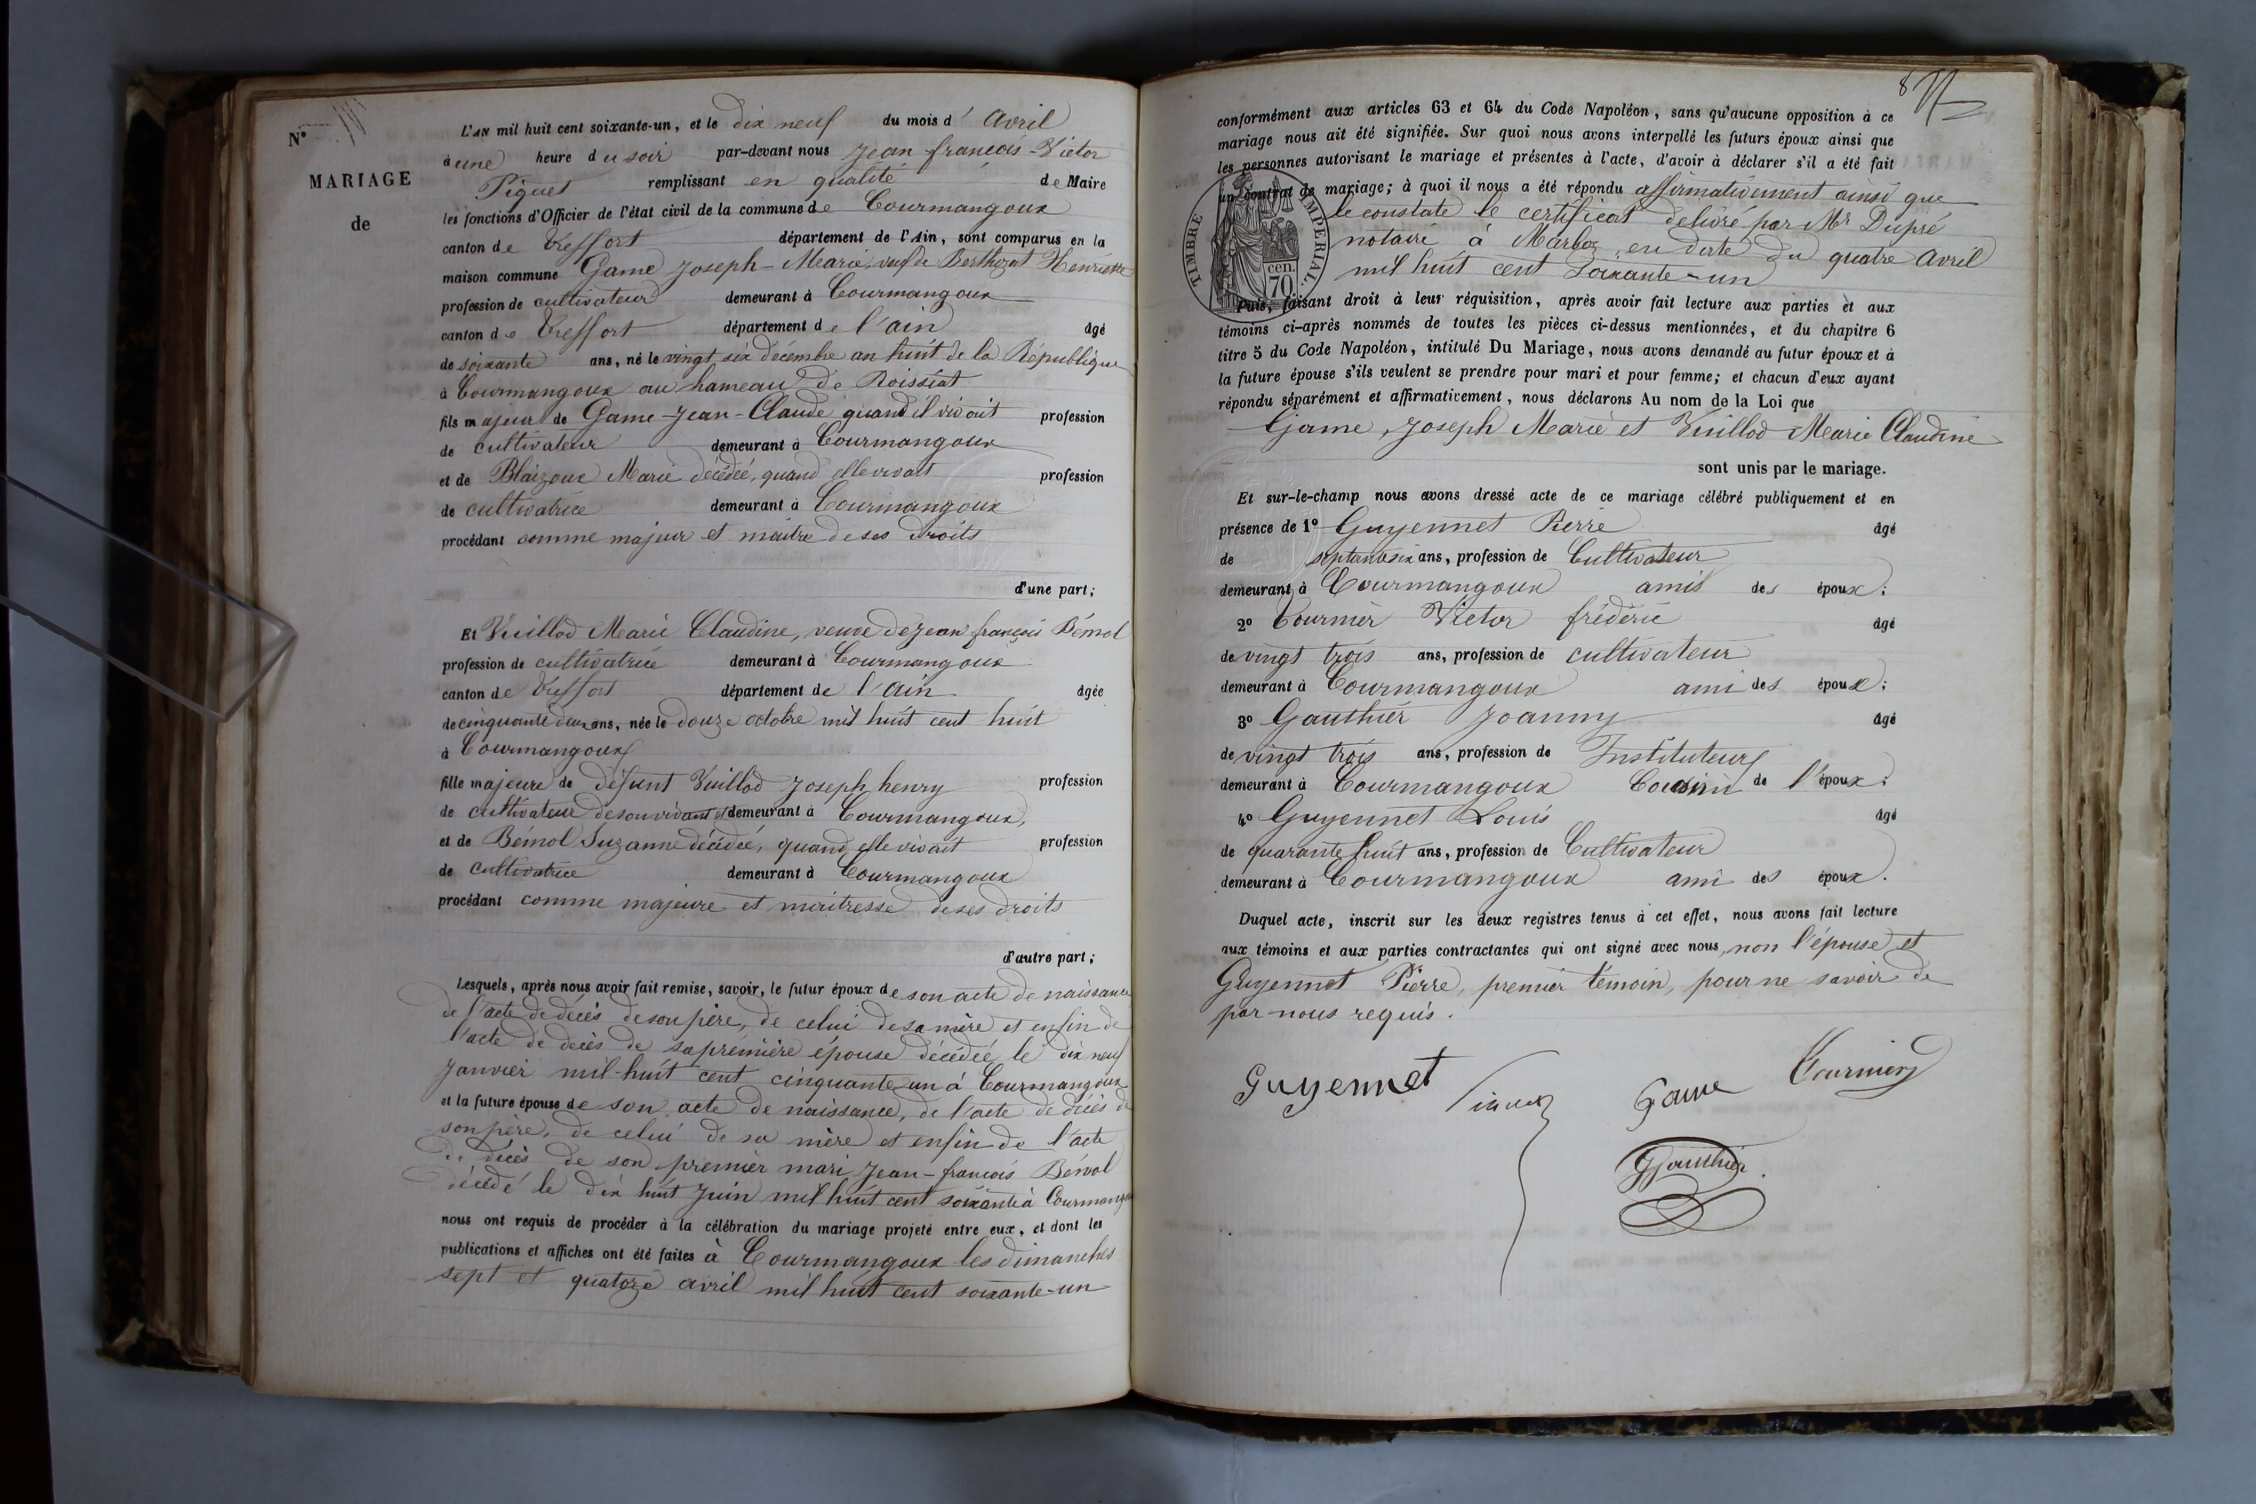 N°
MARIAGE
de
L'AN mil huit cent soixante-un, et le dix neuf du mois d' Avril
à une heure du soir par-devant nous Jean françois-Victor
Piquet remplissant en qualité de Maire
les fonctions d'Officier de l'état civil de la commune de Courmangoux
canton de Treffort département de l'Ain, sont comparus en la
maison commune Game Joseph-Marie, veuf de Henriette
profession de cultivateur demeurant à Courmangoux
canton de Treffort département de l'ain âgé
de soixante ans, né le vingt six décembre an huit de la République
à Courmangoux au hameau de Roissiat
fils majeur de Game-Jean-Claude quand il vivait profession
de cultivateur demeurant à Courmangoux
et de Blaizoux Marie décédée, quand elle vivait profession
de cultivatrice demeurant à Courmangoux
procédant comme majeur et maitre de ses droits
d'une part;
Et Vuillod Marie Claudine, veuve de jean françois Bémol
profession de cultivatrice demeurant à Courmangoux
canton de Treffort département de l'ain âgée
de cinquante deux ans, née le douze octobre mil huit cent huit
à Courmangoux
fille majeure de défunt Vuillod Joseph henry profession
de cultivateur de son vivant et demeurant à Courmangoux,
et de Bémol Suzanne décédée, quand elle vivait profession
de cultivatrice demeurant à Courmangoux
procédant comme majeure et maitresse de ses droits
d'autre part;
Lesquels, après nous avoir fait remise, savoir, le futur époux de son acte de naissance
de l'acte de décès de son père, de celui de sa mère et enfin de
l'acte de décès de sa première épouse décédée le dix neuf
Janvier mil-huit cent cinquante-un à Courmangoux
et la future épouse de son acte de naissance, de l'acte de décès de
son père, de celui de sa mère et enfin de l'acte
de décès de son premier mari Jean-françois Bémol
décédé le dix huit Juin mil huit cent soixante à Courmangoux
nous ont requis de procéder à la célébration du mariage projeté entre eux, et dont les
publications et affiches ont été faites à Courmangoux les dimanches
sept et quatorze avril mil huit cent soixante-un
8
conformément aux articles 63 et 64 du Code Napoléon, sans qu'aucune opposition à ce
mariage nous ait été signifiée. Sur quoi nous avons interpellé les futurs époux ainsi que
les personnes autorisant le mariage et présentes à l'acte, d'avoir à déclarer s'il a été fait
un contrat de mariage; à quoi il nous a été répondu affirmativement ainsi que
le constate le certificat delivré par Mr Dupré
notaire à Marboz, en date du quatre Avril
mil huit cent soixante-un
TIMBRE IMPERIAL
70 cen.
Puis, faisant droit à leur réquisition, après avoir fait lecture aux parties et aux
témoins ci-après nommés de toutes les pièces ci-dessus mentionnées, et du chapitre 6
titre 5 du Code Napoléon, intitulé Du Mariage, nous avons demandé au futur époux et à
la future épouse s'ils veulent se prendre pour mari et pour femme; et chacun d'eux ayant
répondu séparément et affirmativement, nous déclarons Au nom de la Loi que
Game, Joseph Marie et Vuillod Marie Claudine
sont unis par le mariage.
Et sur-le-champ nous avons dressé acte de ce mariage célébré publiquement et en
présence de 1° Guyennet Pierre âgé
de ans, profession de Cultivateur
demeurant à Courmangoux amis des époux;
2° Cournier Victor fréderic âgé
de vingt trois ans, profession de cultivateur
demeurant à Courmangoux ami des époux;
3° Gauthier Joanny âgé
de vingt trois ans, profession de Instituteur
demeurant à Courmangoux Cousin de l'époux;
4° Guyennet Louis âgé
de quarante huit ans, profession de Cultivateur
demeurant à Courmangoux ami des époux.
Duquel acte, inscrit sur les deux registres tenus à cet effet, nous avons fait lecture
aux témoins et aux parties contractantes qui ont signé avec nous, non l'épouse et
Guyennet Pierre, premier témoin, pour ne savoir de
par nous requis.
Guyennet Game Cournier
Gauthier